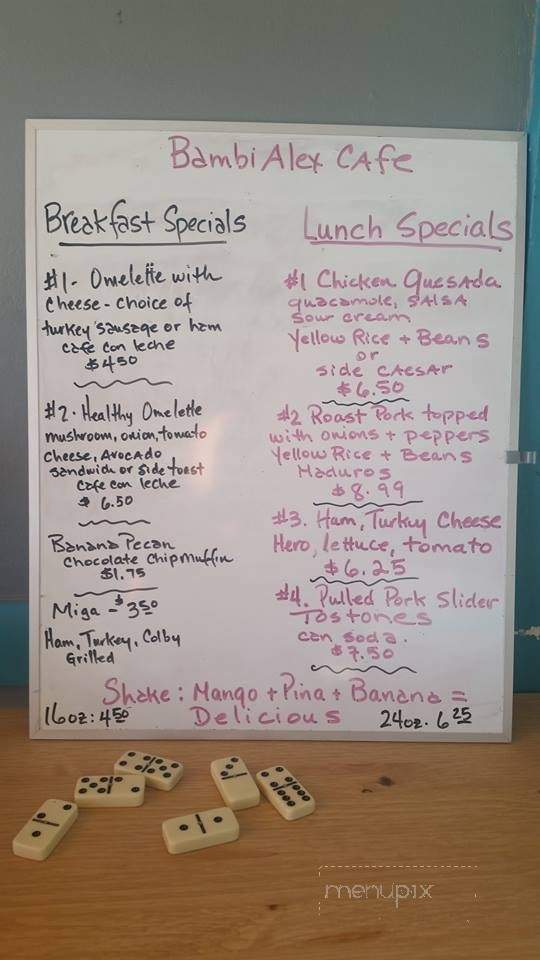 Bambi Alex Cafe
Breakfast Specials
#1- Omelette with
Cheese - choice of
turkey sausage or ham
cafe con leche
$4.50
#2. Healthy Omelette
mushroom, onion, tomato
cheese, Avocado
sandwich or side toast
cafe con leche
$ 6.50
Banana Pecan
Chocolate Chip muffin
$1.75
Miga - $3.50
Ham, Turkey, Colby
Grilled
Lunch Specials
#1 Chicken Quesada
guacamole, SAlSA
sour cream
Yellow Rice + Beans
or
side CAESAr
$6.50
#2 Roast Pork topped
with onions + peppers
Yellow Rice + Beans
Maduros
$8.99
#3. Ham, Turkey Cheese
Hero, lettuce, tomato
$6.25
#4. Pulled Pork Slider
Tostones
can soda.
$7.50
Shake: Mango + Pina + Banana =
16oz: 4.50 Delicious 24oz. 6.25
menupix